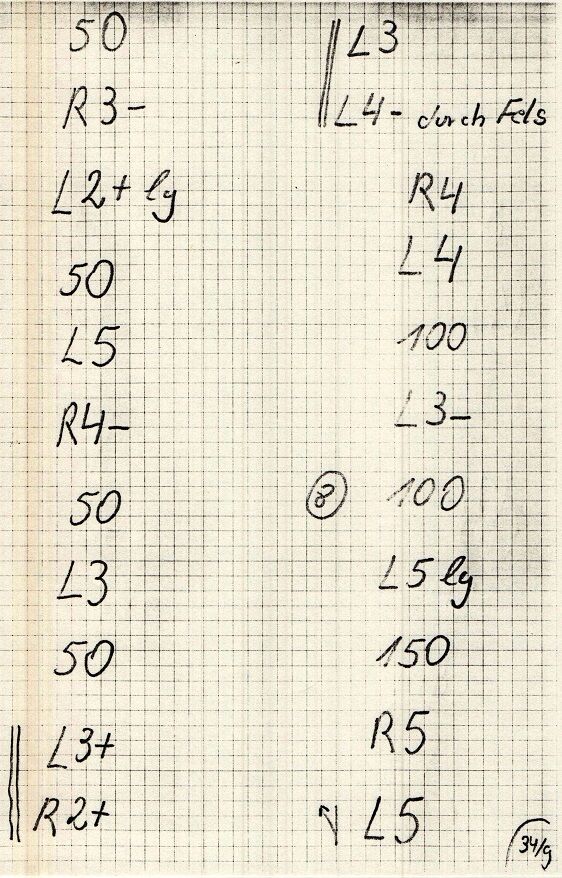 50
R3-
L2+ lg
50
L5
R4-
50
L3
50
L3+
R2+
L3
L4- durch Fels
R4
L4
100
L3-
8 100
L5 lg
150
R5
L5
34/g